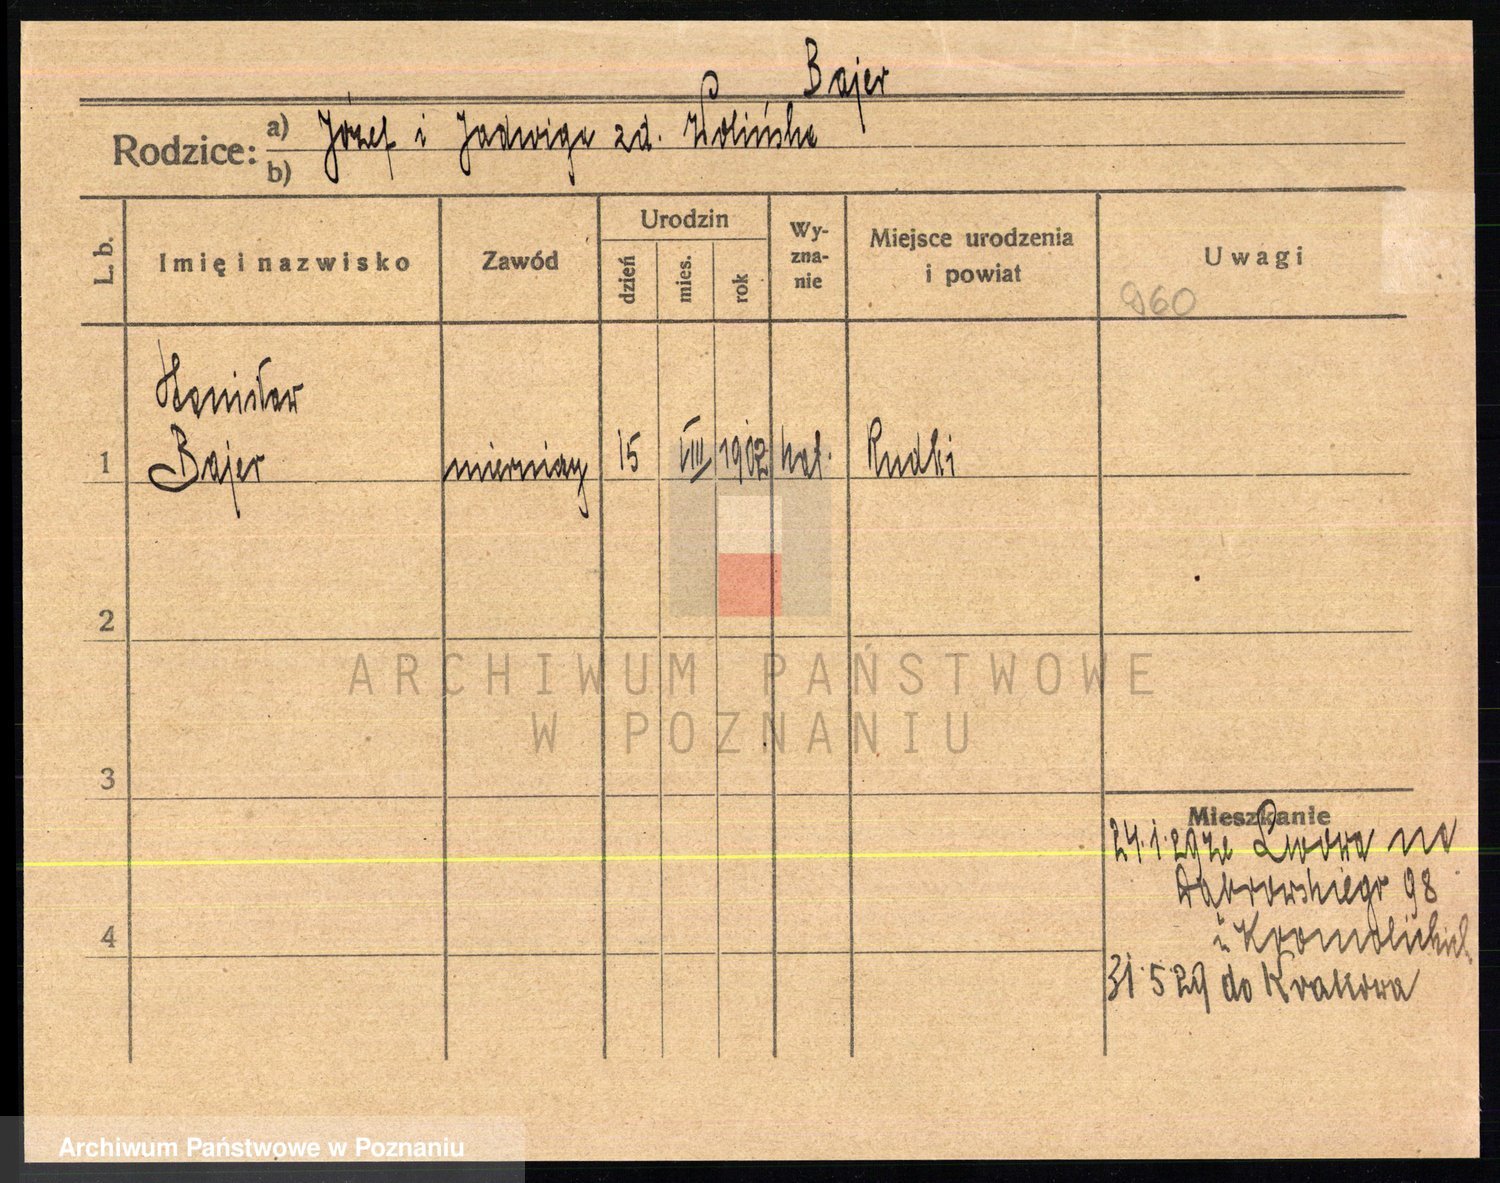 Bajer
Rodzice: a) Józef i Jadwiga zd. Wolińska
b)
L. b.
Imię i nazwisko
Zawód
Urodzin
dzień
mies.
rok
Wy-
zna-
nie
Miejsce urodzenia
i powiat
Uwagi
960
Stanisław
1 Bajer mierniczy 15 VIII 1902 kat. Rudki
2
ARCHIWUM PAŃSTWOWE
W POZNANIU
3
Mieszkanie
24.1.29 ze Lwowa na
Dąbrowskiego 98
u
4
31.5 29 do Krakowa
Archiwum Państwowe w Poznaniu